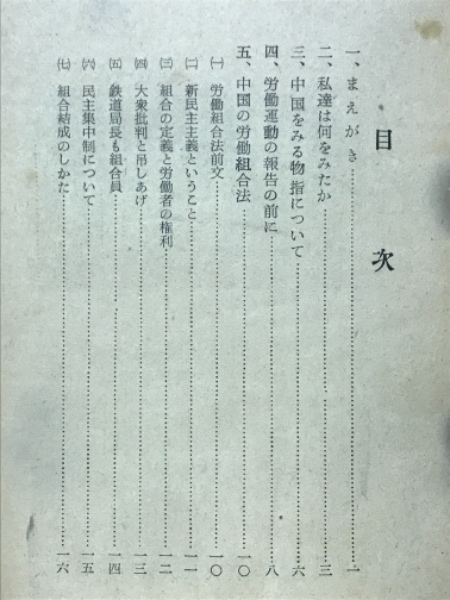 目次
一、まえがき……一
二、私達は何をみたか……三
三、中国をみる物指について……六
四、労働運動の報告の前に……八
五、中国の労働組合法……一〇
㈠ 労働組合法前文……一〇
㈡ 新民主主義ということ……一一
㈢ 組合の定義と労働者の権利……一二
㈣ 大衆批判と吊しあげ……一三
㈤ 鉄道局長も組合員……一四
㈥ 民主集中制について……一五
㈦ 組合結成のしかた……一六